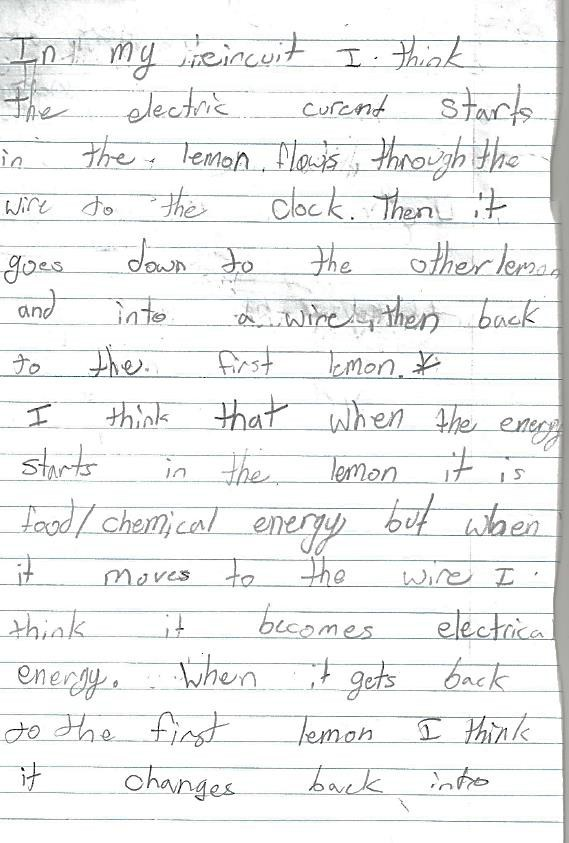 In my ceircuit I think
the electric curent starts
in the lemon, flows, through the
wire to the clock. Then it
goes down to the other lemon
and into a wire, then back
to the first lemon. *
I think that when the energy
starts in the lemon it is
food/chemical energy but when
it moves to the wire I
think it becomes electrical
energy. When it gets back
to the first lemon I think
it changes back into